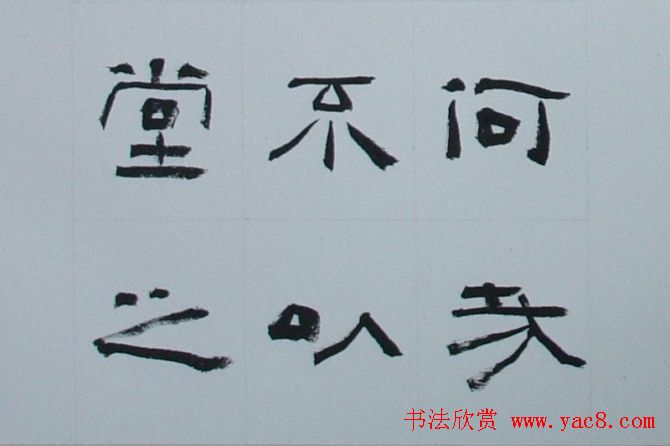 何
不以
堂之
书法欣赏 www.yac8.com